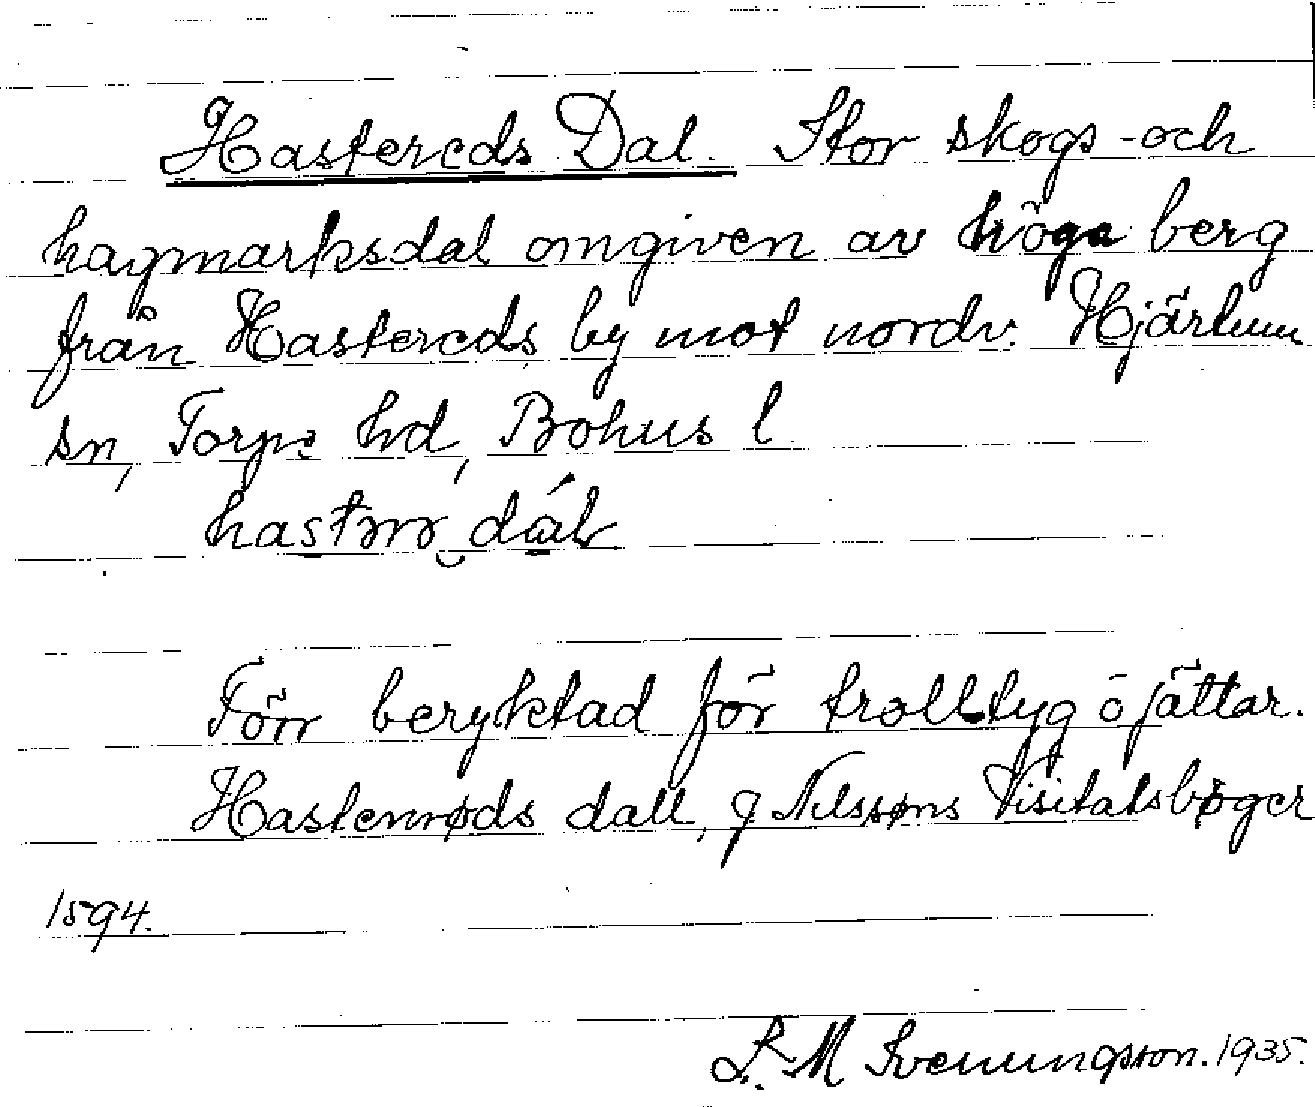 Hastereds Dal. Stor skogs- och
hagmarksdal omgiven av höga berg
från Hastereds by mot nordv. Hjärtum
sn, Torpe hd, Bohus l
Förr beryktad för trolltyg ö jättar.
Hastenrøds dall, J Nilssøns Visitatsbøger
1594.
L. M Svenungsson. 1935.